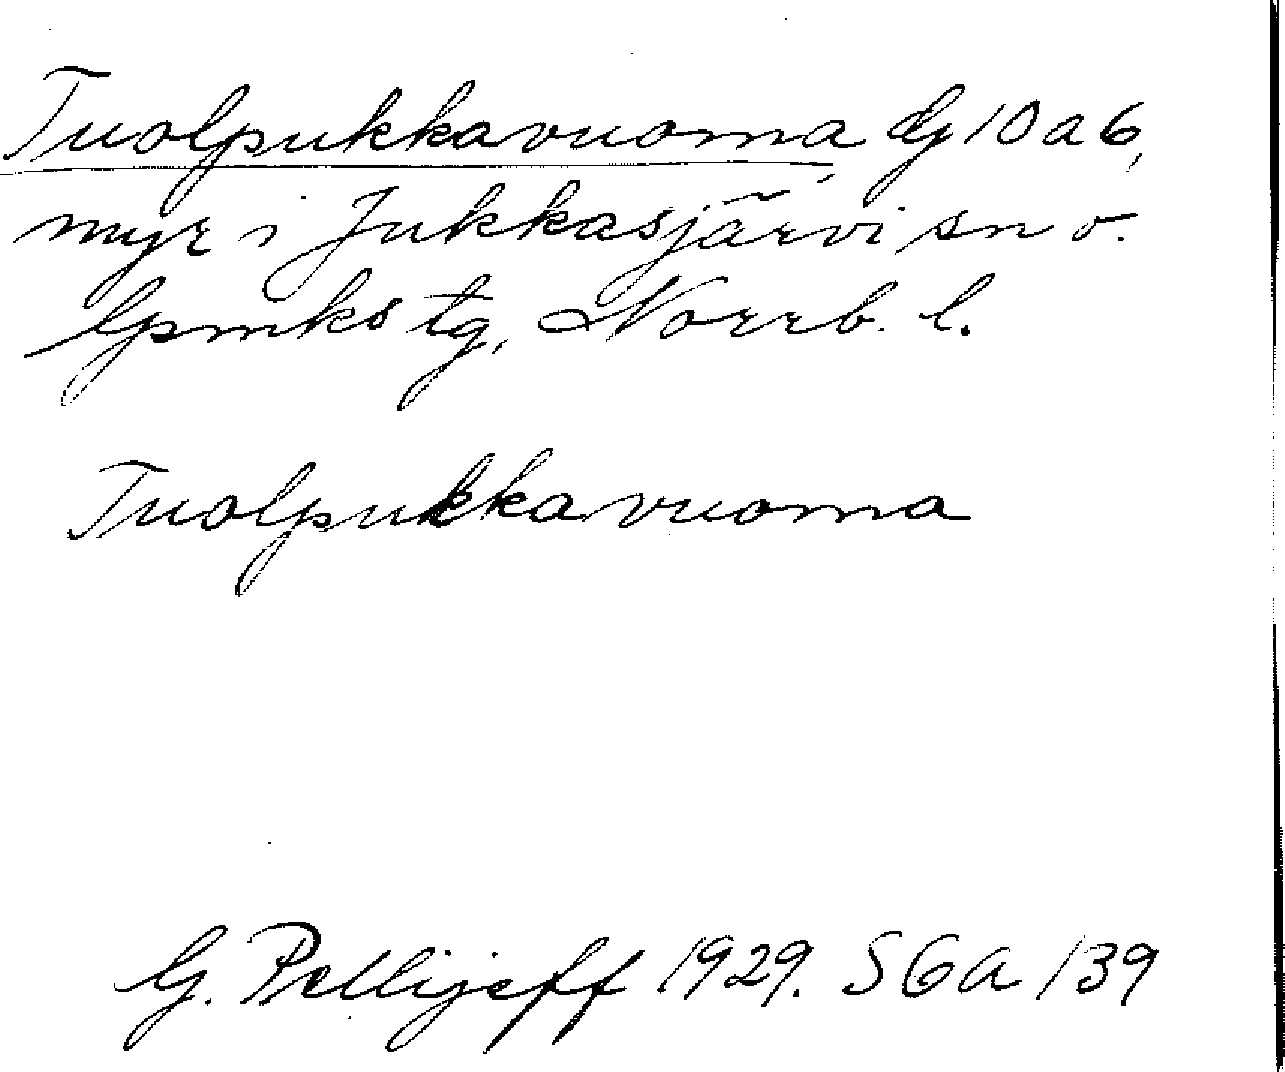 Tuolpukkavuoma, dG 10 a 6,
myr i Jukkasjärvi sn o.
lpmks tg, Norrb. l.
Tuolpukkavuoma
G. Pellijeff 1929. SGA 139